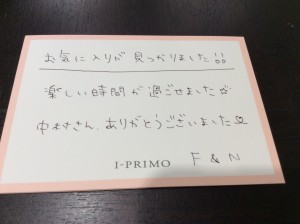 お気に入りが見つかりました!!
楽しい時間が過ごせました☆
中村さん、ありがとうございました
I-PRIMO
F & N